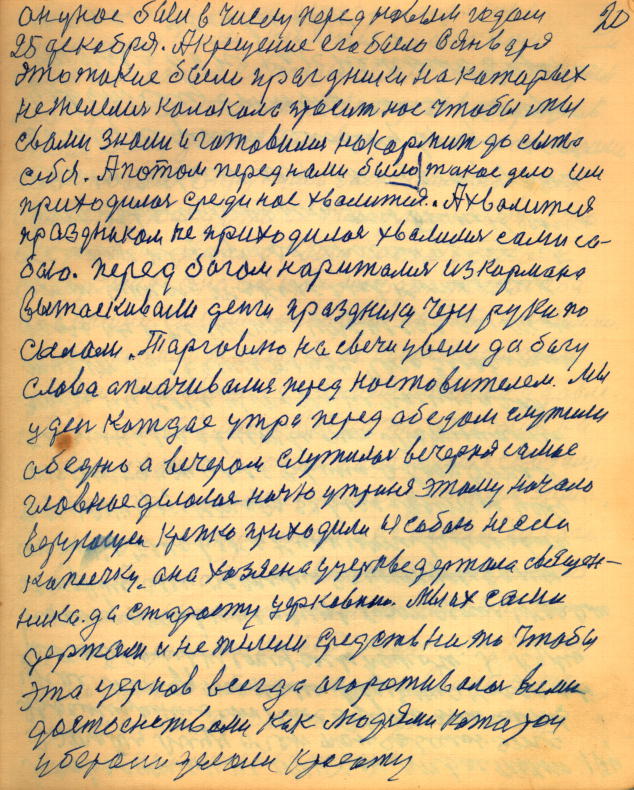 он у нас были в числу перед новым годом 20
25 декабря. А крещение его было 6 января
это такие были праздники на каторых
не жемлемя колоколь просит нас чтобы мы
свами знали и готовимя накормит до сыто
себя. А потом перед нами было такое дело им
приходилоя среди нас хвалитея. А хвалитея
праздником не приходилоя хвалимя сами со-
бою. перед богом каритамя из кармана
вытаскивали денги праздники через руки по
сылали. Тарговлю на свечи увели да богу
слова аплачивамя перед настовителем. Мы
у ден каждае утра перед обедом служили
обедню а вечером служилоя вечерня самае
главнае делолоя ночю утриня этому начало
верующеи крепко приходили и с собою несли
копеечку. она хозяена у церкве держала священ-
ника. да старосту церковны. Мы их сами
держали и не жалели средств на то чтобы
эта церков всегда агоротивалоя всеми
достоенствами как людями катарои
уберали делали красоту